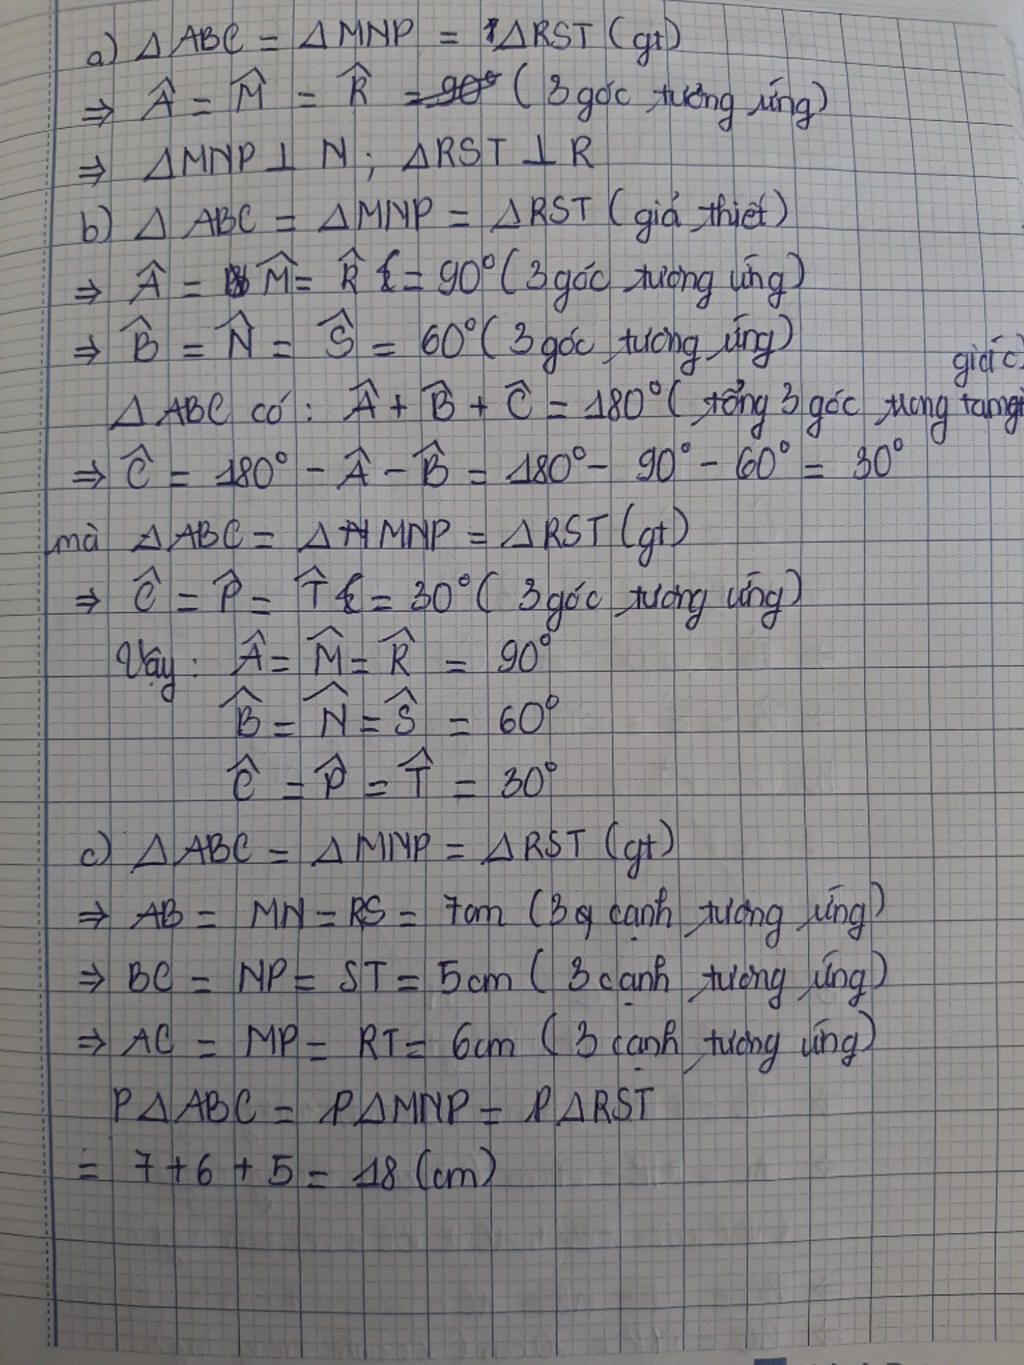 a) △ABC = △MNP = △RST (gt)
⇒ Â = M̂ = R̂ = 90° (3 góc tương ứng)
⇒ △MNP ⊥ N ; △RST ⊥ R
b) △ABC = △MNP = △RST (giả thiết)
⇒ Â = M̂ = R̂ = 90° (3 góc tương ứng)
⇒ B̂ = N̂ = Ŝ = 60° (3 góc tương ứng)
△ABC có: Â + B̂ + Ĉ = 180° (tổng 3 góc trong tam giác)
⇒ Ĉ = 180° - Â - B̂ = 180° - 90° - 60° = 30°
mà △ABC = △MNP = △RST (gt)
⇒ Ĉ = P̂ = T̂ = 30° (3 góc tương ứng)
Vậy: Â = M̂ = R̂ = 90°
B̂ = N̂ = Ŝ = 60°
Ĉ = P̂ = T̂ = 30°
c) △ABC = △MNP = △RST (gt)
⇒ AB = MN = RS = 7cm (3 cạnh tương ứng)
⇒ BC = NP = ST = 5cm (3 cạnh tương ứng)
⇒ AC = MP = RT = 6cm (3 cạnh tương ứng)
P△ABC = P△MNP = P△RST
= 7 + 6 + 5 = 18 (cm)